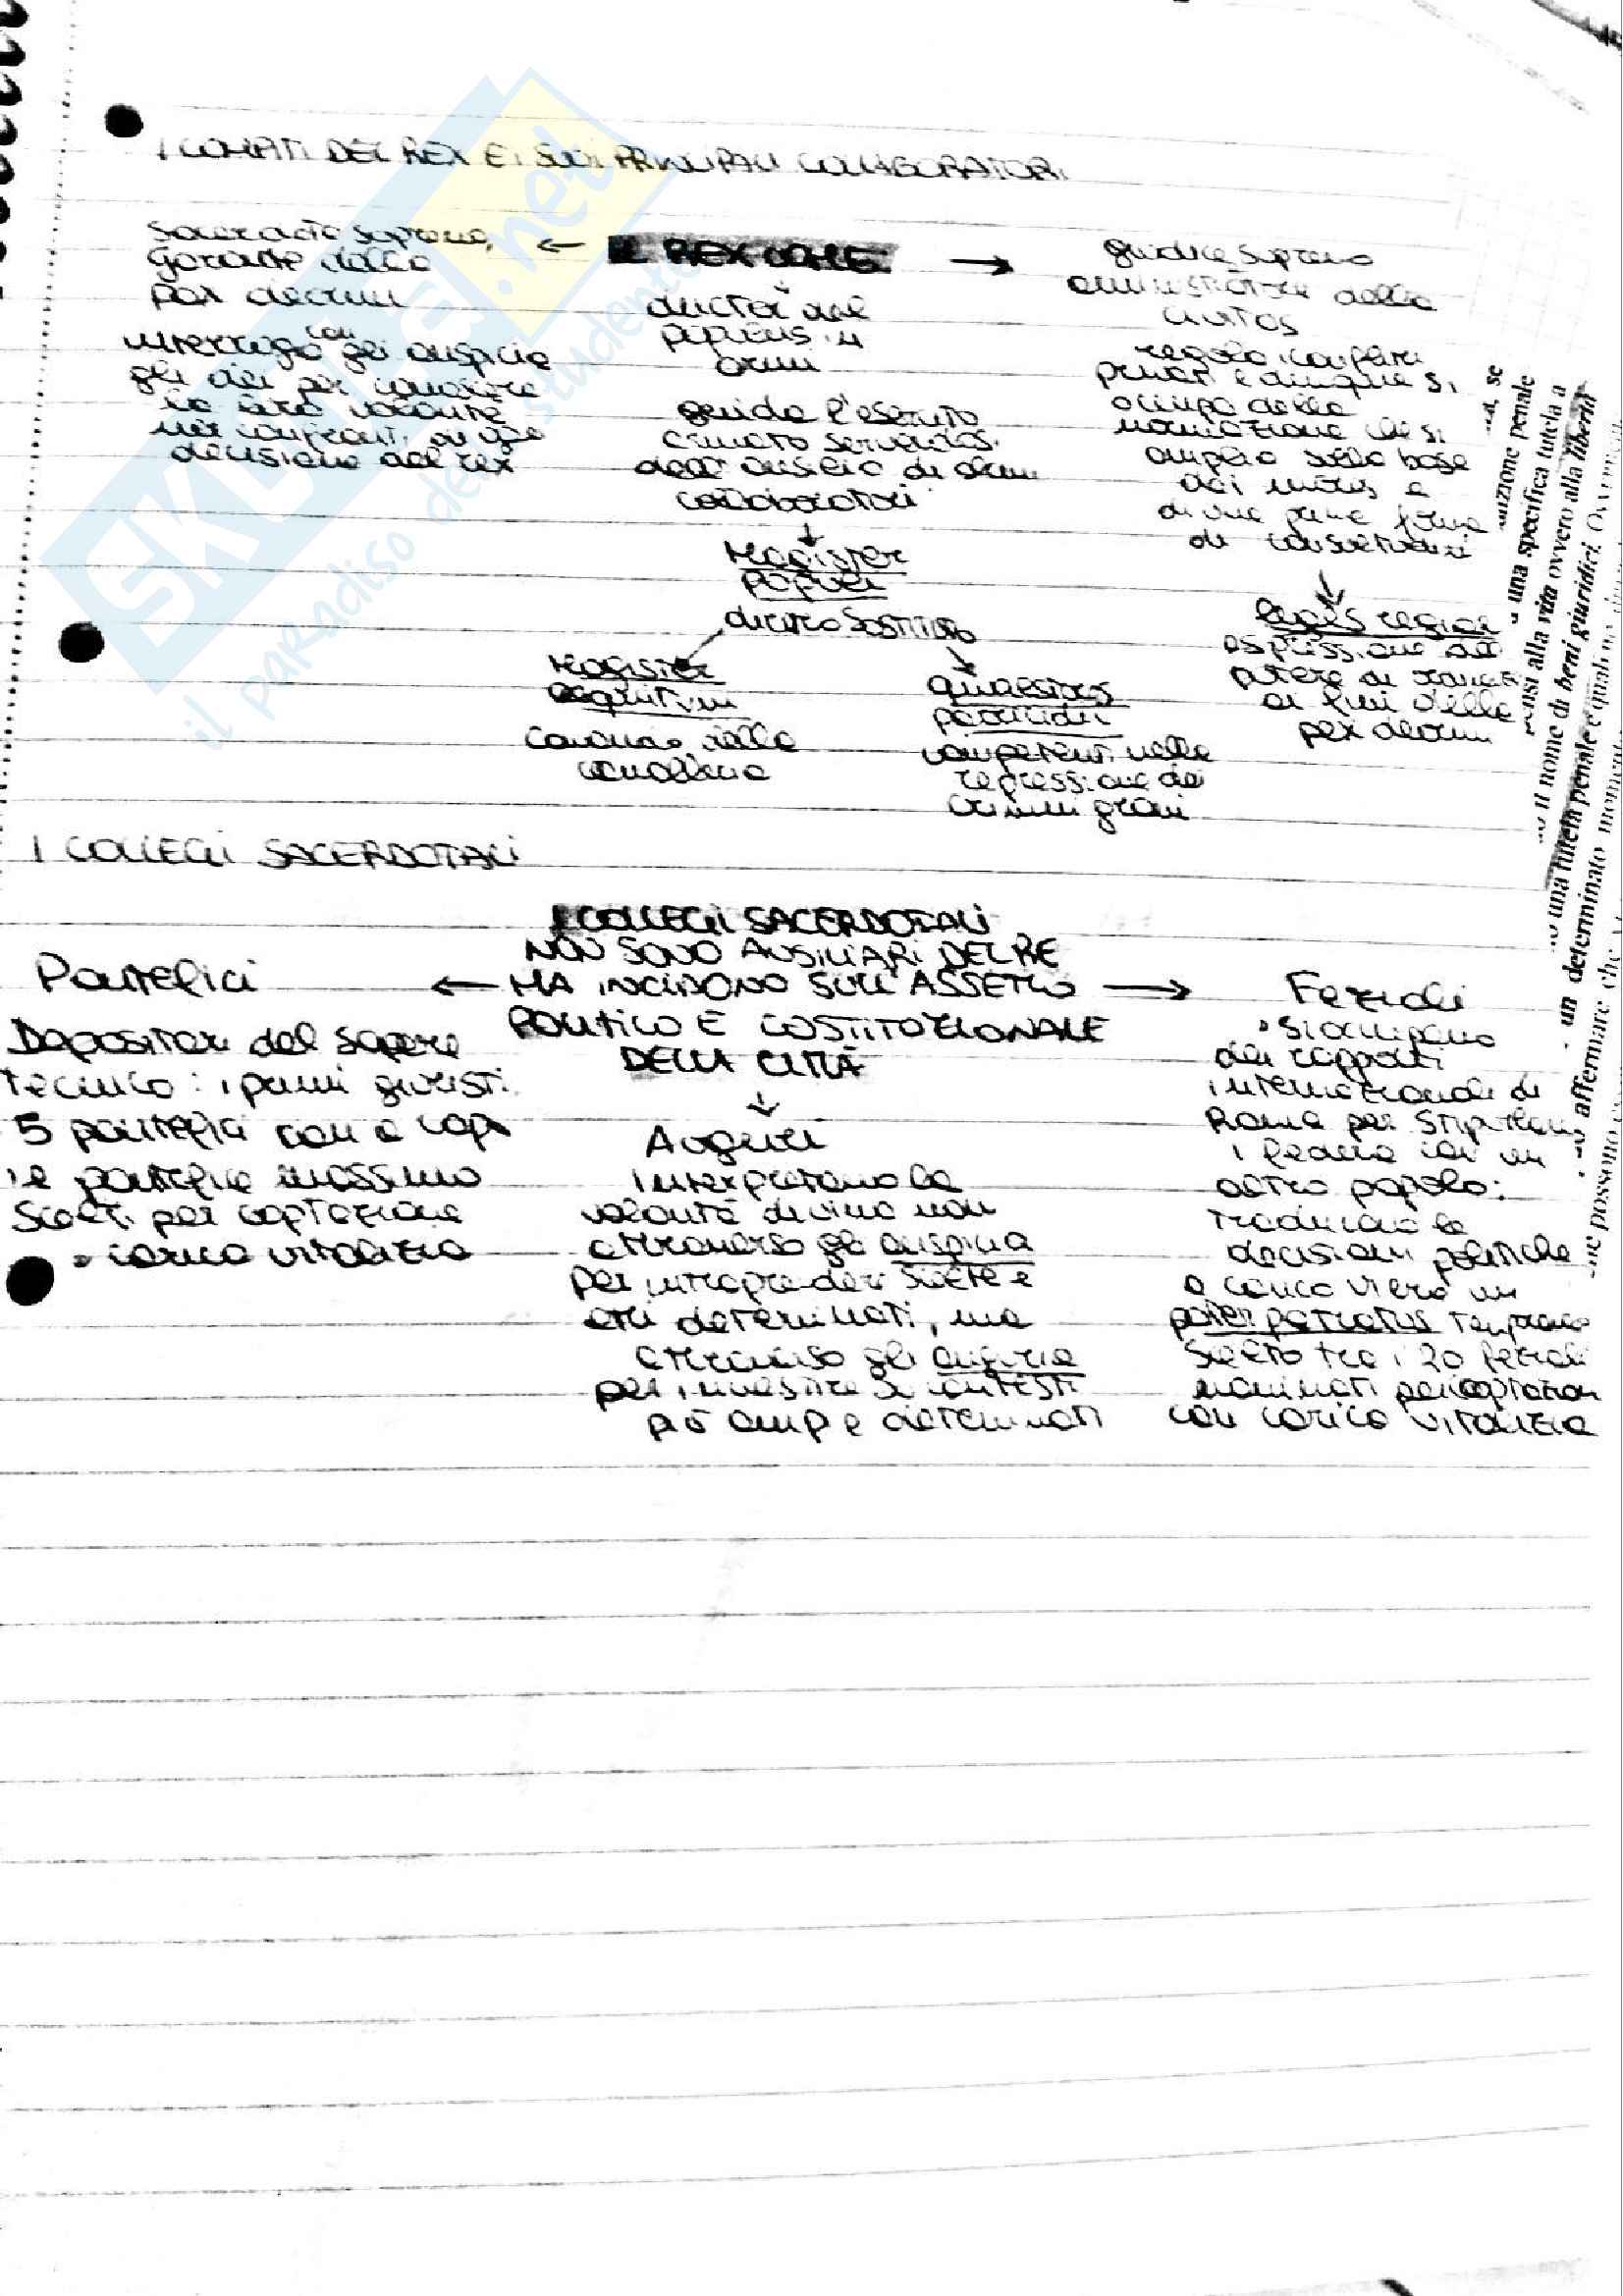 I COMPITI DEL REX E I SUOI PRINCIPALI COLLABORATORI
Sacerdote supremo,
garante della
pax deorum
interroga con gli auspicia
gli dei per conoscere
la loro volontà
nei confronti di una
decisione del rex
←
IL REX
→
ductor del
populus in
armi
guida l'esercito
cimato servendosi
dell'ausilio di alcuni
collaboratori
↓
Magister
populi
diretto sostituto
Magister
equitum
comando della
cavalleria
quaestores
parricidii
competenti nella
repressione dei
crimini gravi
giudice supremo
amministratore della
civitas
regola i conflitti
privati e dunque si
occupa della
normazione che si
amplia sulla base
dei mores e
di una prima forma
di
↓
leges regiae
espressione del
potere di
ai fini della
pax deorum
I COLLEGI SACERDOTALI
I COLLEGI SACERDOTALI
NON SONO AUSILIARI DEL RE
← MA INCIDONO SULL'ASSETTO →
POLITICO E COSTITUZIONALE
DELLA CITTÀ
↓
Pontefici
Depositari del sapere
tecnico: i primi giuristi
5 pontefici con a capo
il pontefice massimo
Scelti per cooptazione
• carica vitalizia
Auguri
interpretano la
volontà divina non
attraverso gli auspicia
per intraprendere scelte e
atti determinati, ma
attraverso gli auguria
per investire i contesti
più ampi e determinati
Feziali
• si occupano
dei rapporti
internazionali di
Roma per stipulare
i foedera con un
altro popolo:
traducono le
decisioni politiche
a capo vi era un
pater patratus temporaneo
scelto tra i 20 feziali
nominati per cooptazione
con carica vitalizia
se
una specifica tutela a
alla vita ovvero alla libertà
il nome di beni giuridici.
una tutela penale e quali
un determinato momento
affermare che
possono
SKUOLA.net
il paradiso dello studente